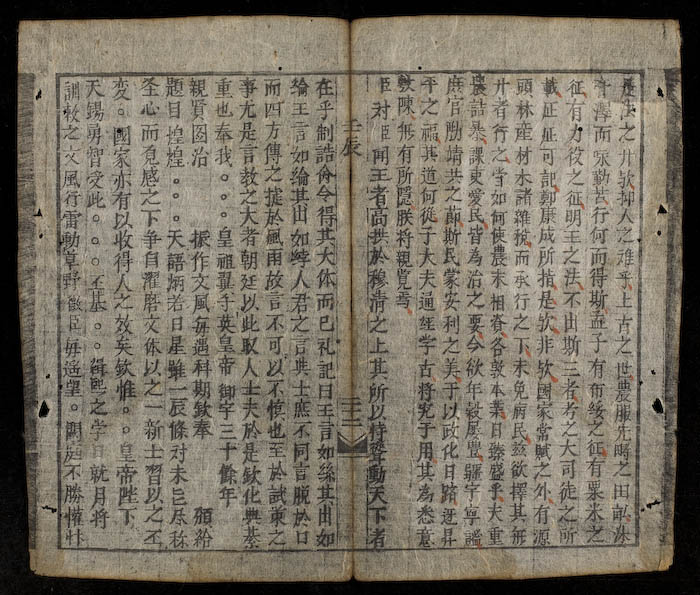 法之弁欤抑人之难乎上古之世農服先畴之田畝沐
膏澤而衆勤苦行何而得斯孟子有布縷之征有粟米之
征有力役之征明王之法不由斯三者考之大司徒之所
載征征可記鄭康成所指是欤非欤國家常賦之外有源
頭林産材木諸雜稅而承行之下未免病民兹欲擇其無
弁者行之當如何使農末相脊各敦本業日臻盛乎夫重
農詰暴課吏愛民皆為治之要今欲年穀屡豐疆宇寧謐
庶官励靖共之節斯民蒙安利之美于以政化日躋迓昇
平之福其道何從子大夫通経学古将究于用其為悉意
敷陳無有所隱朕将親覧焉
臣对臣闻王者高拱於穆清之上其所以恃聲動天下者
壬辰
三十二
在乎制誥命令得其大体而已礼記曰王言如絲其出如
綸王言如綸其出如綍人君之言與士庶不同言脱於口
而四方傳之捷於風雨故言不可以不慎也至於試策之
事尤是言教之大者朝廷以此取人士夫於是欽化典綦
重也奉我。。。皇祖翼尊英皇帝 御宇三十餘年
親賢图治 振作文風每遇科期欽奉 頒給
題目煌煌。。。天語炳若日星雖一辰條对未能尽称
圣心而覔感之下争自濯磨文体以之一新士習以之丕
变。。國家亦有以收得人之效矣欽惟。。。皇帝陛下
天錫勇智受此。。。丕基。。緝熙之学日就月将
訓敕之文風行雷動草野微臣每遥望。闕庭不勝懽忭